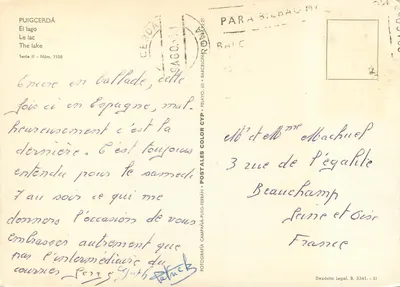 PUIGCERDÁ
El lago
Le lac
The lake
Serie II - Núm. 1108
PARA BILBAO
Encore en ballade, cette
fois ci en Espagne, mal-
heureusement c'est la
dernière. C'est toujours
entendu pour le samedi
7 au soir ce qui me
donnera l'occasion de vous
embrasser autrement que
par l'intermédiaire du
courrier
Patrick
FOTOGRAFÍA CAMPAÑÁ-PUIG-FERRÁN - POSTALES COLOR CYP
Mr et Mme Machuel
3 rue de l'égalité
Beauchamp
Seine et Oise
France
Depósito Legal. B.